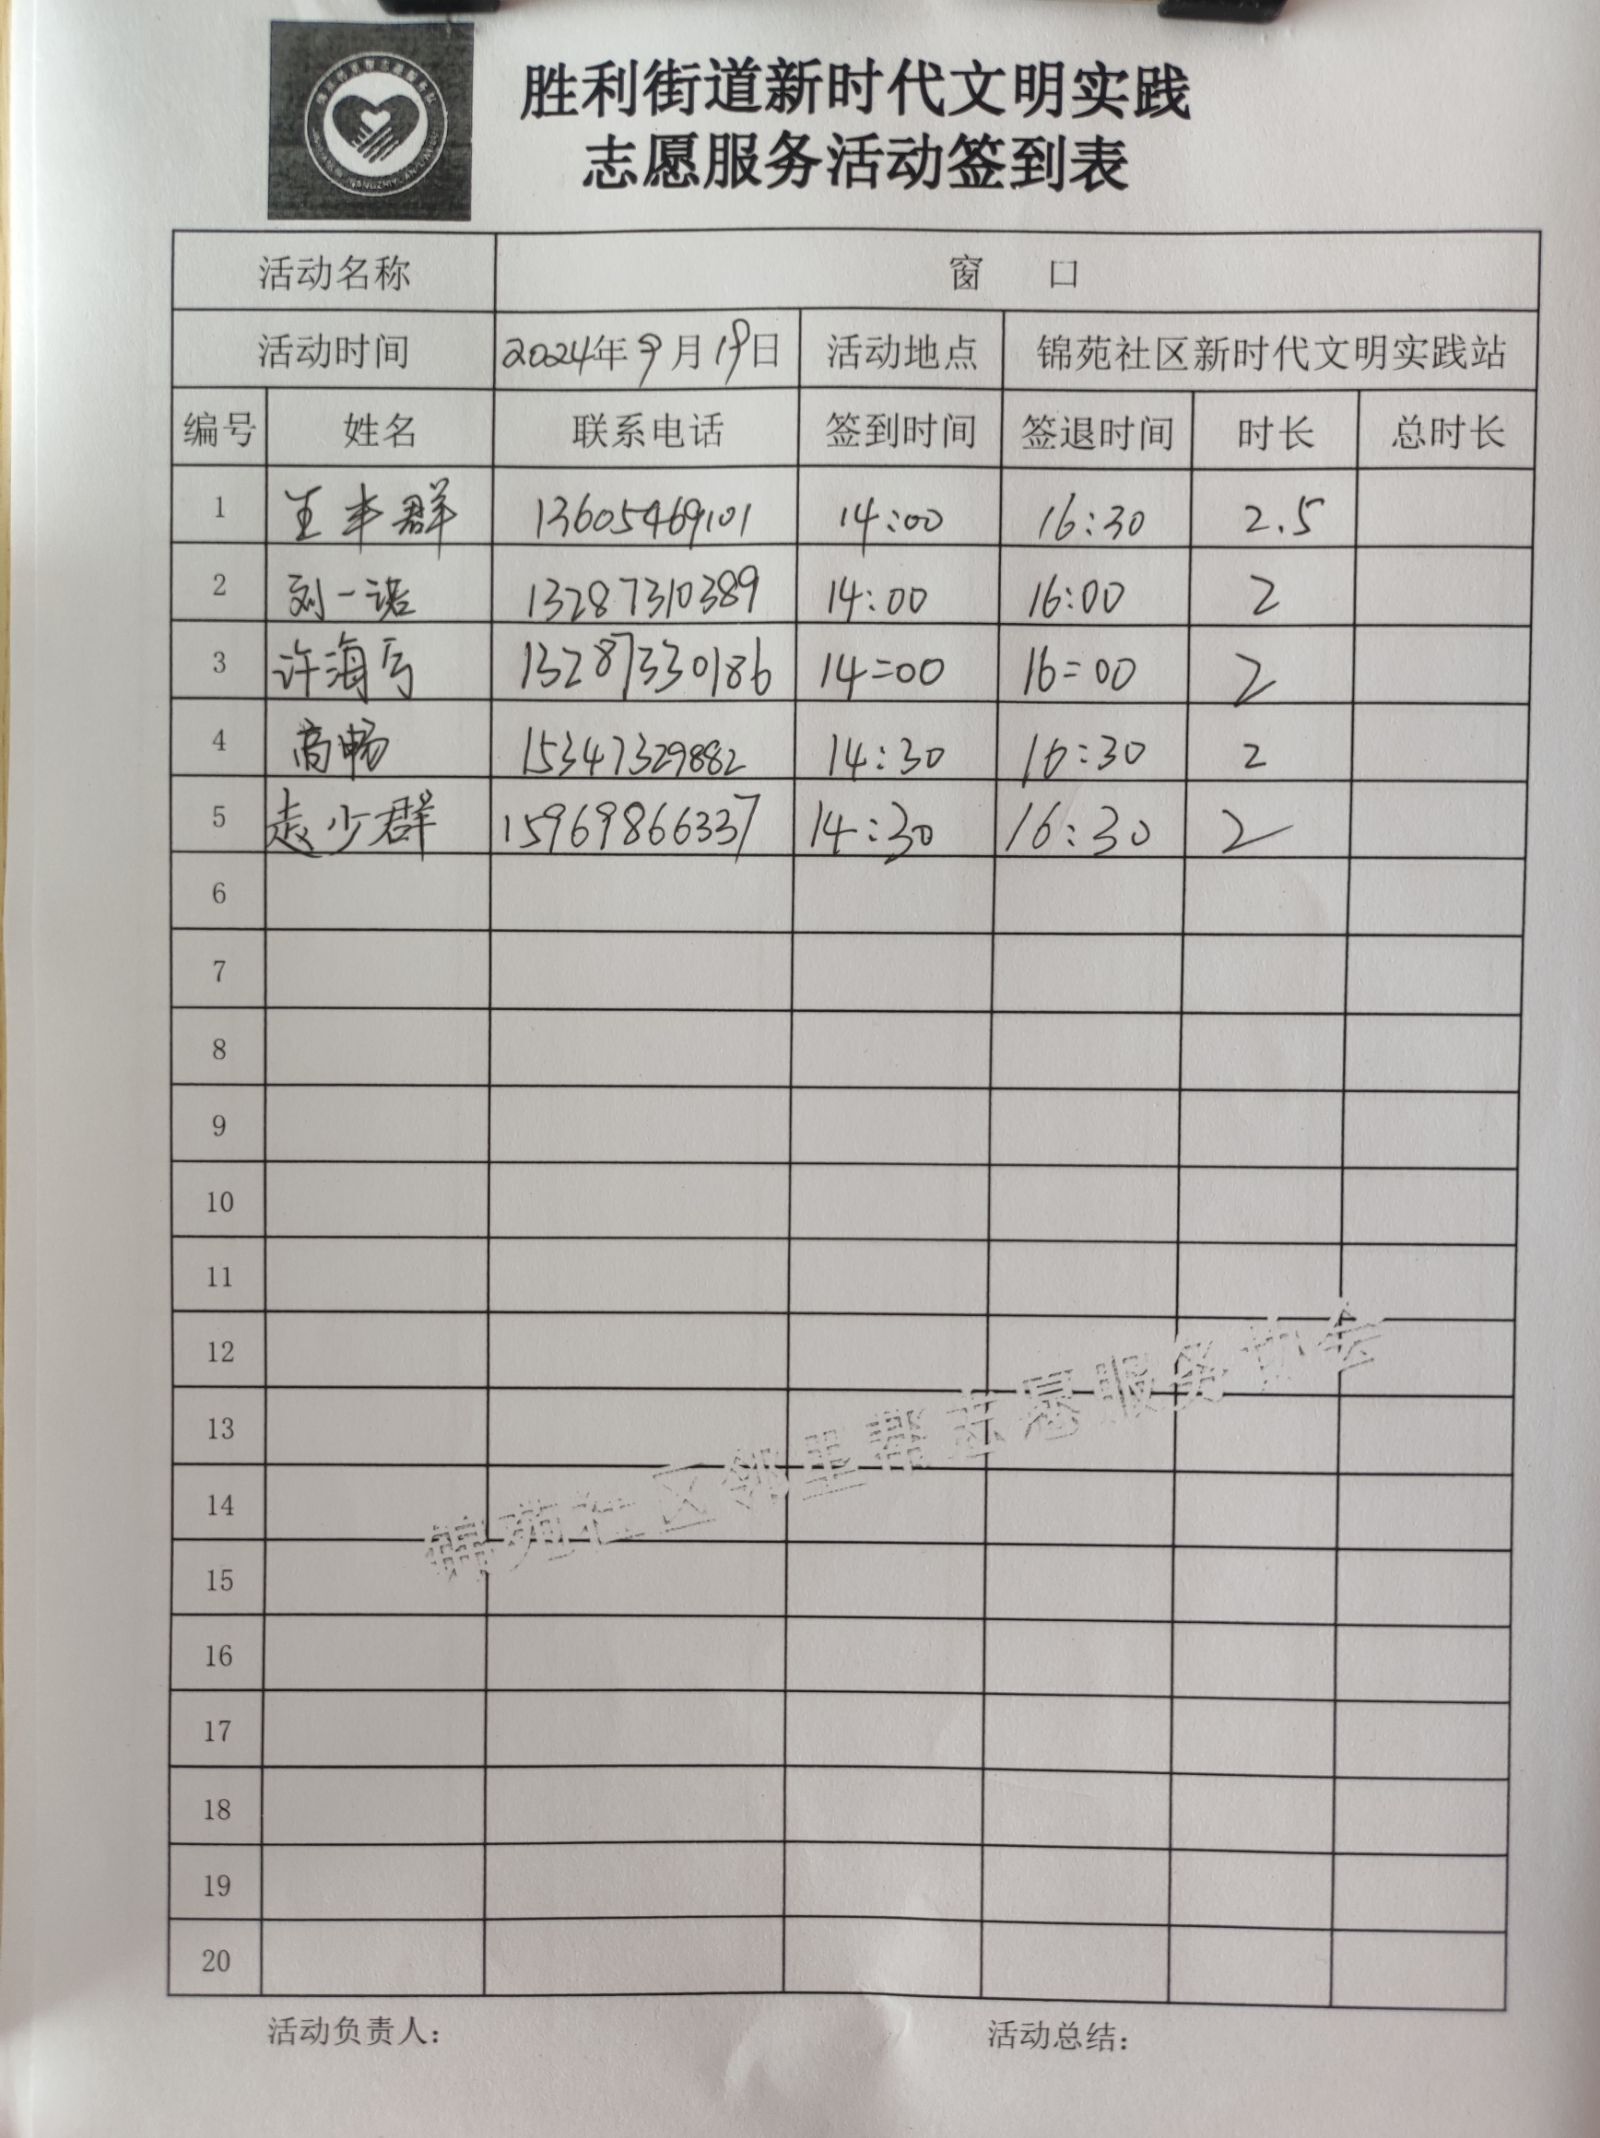 胜利街道新时代文明实践
志愿服务活动签到表
活动名称 窗 口
活动时间 2024年9月19日 活动地点 锦苑社区新时代文明实践站
编号 姓名 联系电话 签到时间 签退时间 时长 总时长
1 王丰群 13605469101 14:00 16:30 2.5
2 刘一诺 13287310389 14:00 16:00 2
3 许海 13287330186 14=00 16=00 2
4 高畅 15347329882 14:30 16:30 2
5 赵少群 15969866337 14:30 16:30 2
6
7
8
9
10
11
12
13
14
15
16
17
18
19
20
锦苑社区邻里帮志愿服务协会
活动负责人：
活动总结：